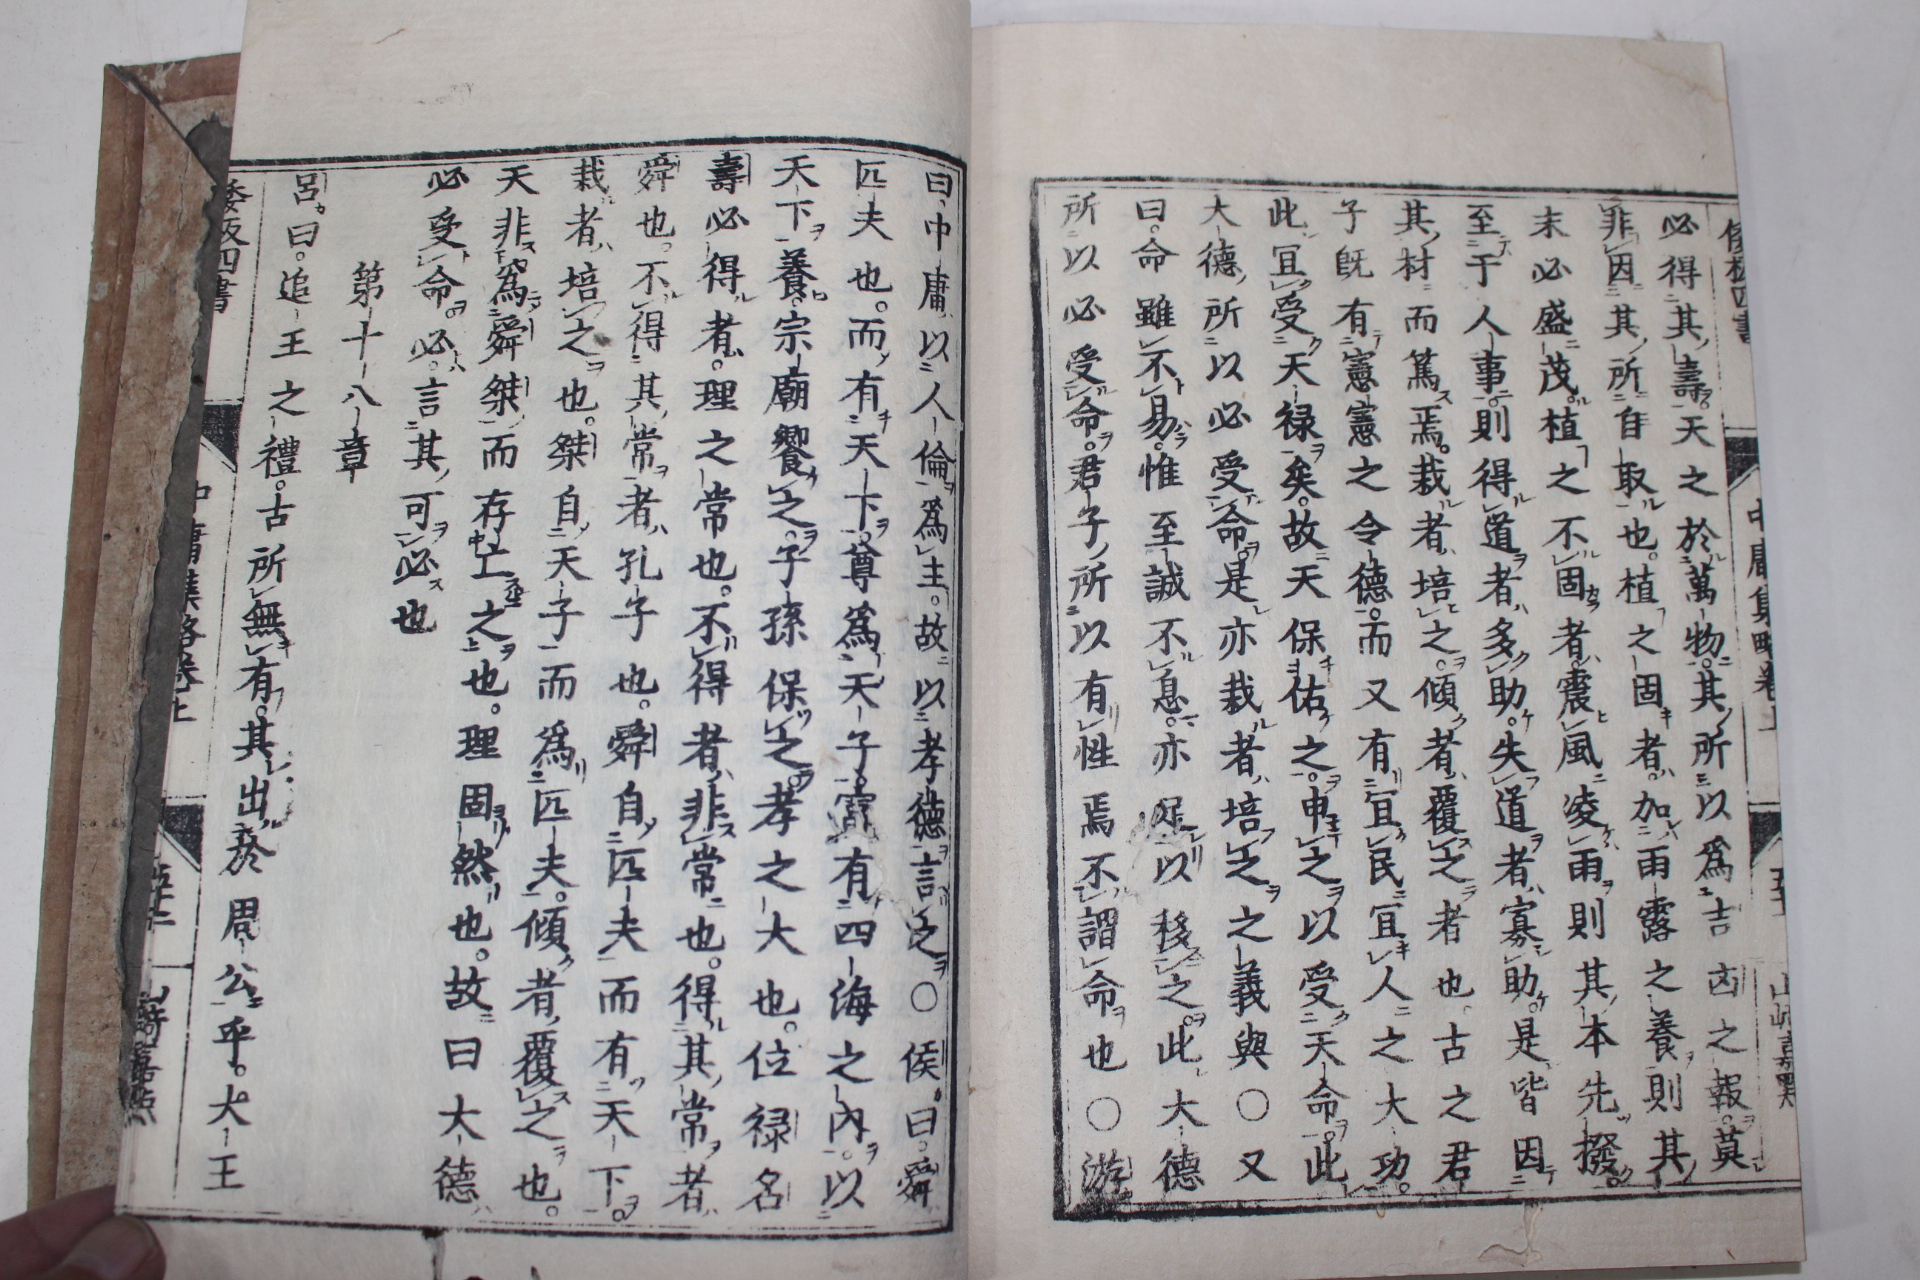 倭板四書 中庸集略卷上 山崎嘉點
必得其壽天之於萬物其所以爲吉凶之報莫
非因其所自取也植之固者加雨露之養則其
末必盛茂植之不固者震風凌雨則其本先撥
至于人事則得道者多助失道者寡助是皆因
其材而篤焉栽者培之傾者覆之者也古之君
子既有憲憲之令德而又有宜民宜人之大功
此宜受天禄矣故天保佑之申之以受天命此
大德所以必受命是亦栽者培之之義與〇又
曰命雖不易惟至誠不息亦足以移之此大德
所以必受命君子所以有性焉不謂命也〇游
曰中庸以人倫爲主故以孝德言之〇侯曰舜
匹夫也而有天下尊爲天子富有四海之內以
天下養宗廟饗之子孫保之孝之大也位禄名
壽必得者理之常也不得者非常也得其常者
舜也不得其常者孔子也舜自匹夫而有天下
栽者培之也桀自天子而爲匹夫傾者覆之也
天非爲舜桀而存亡之也理固然也故曰大德
必受命必言其可必也
第十八章
呂曰追王之禮古所無有其出於周公乎大王
倭板四書 中庸集略卷上 山崎嘉點